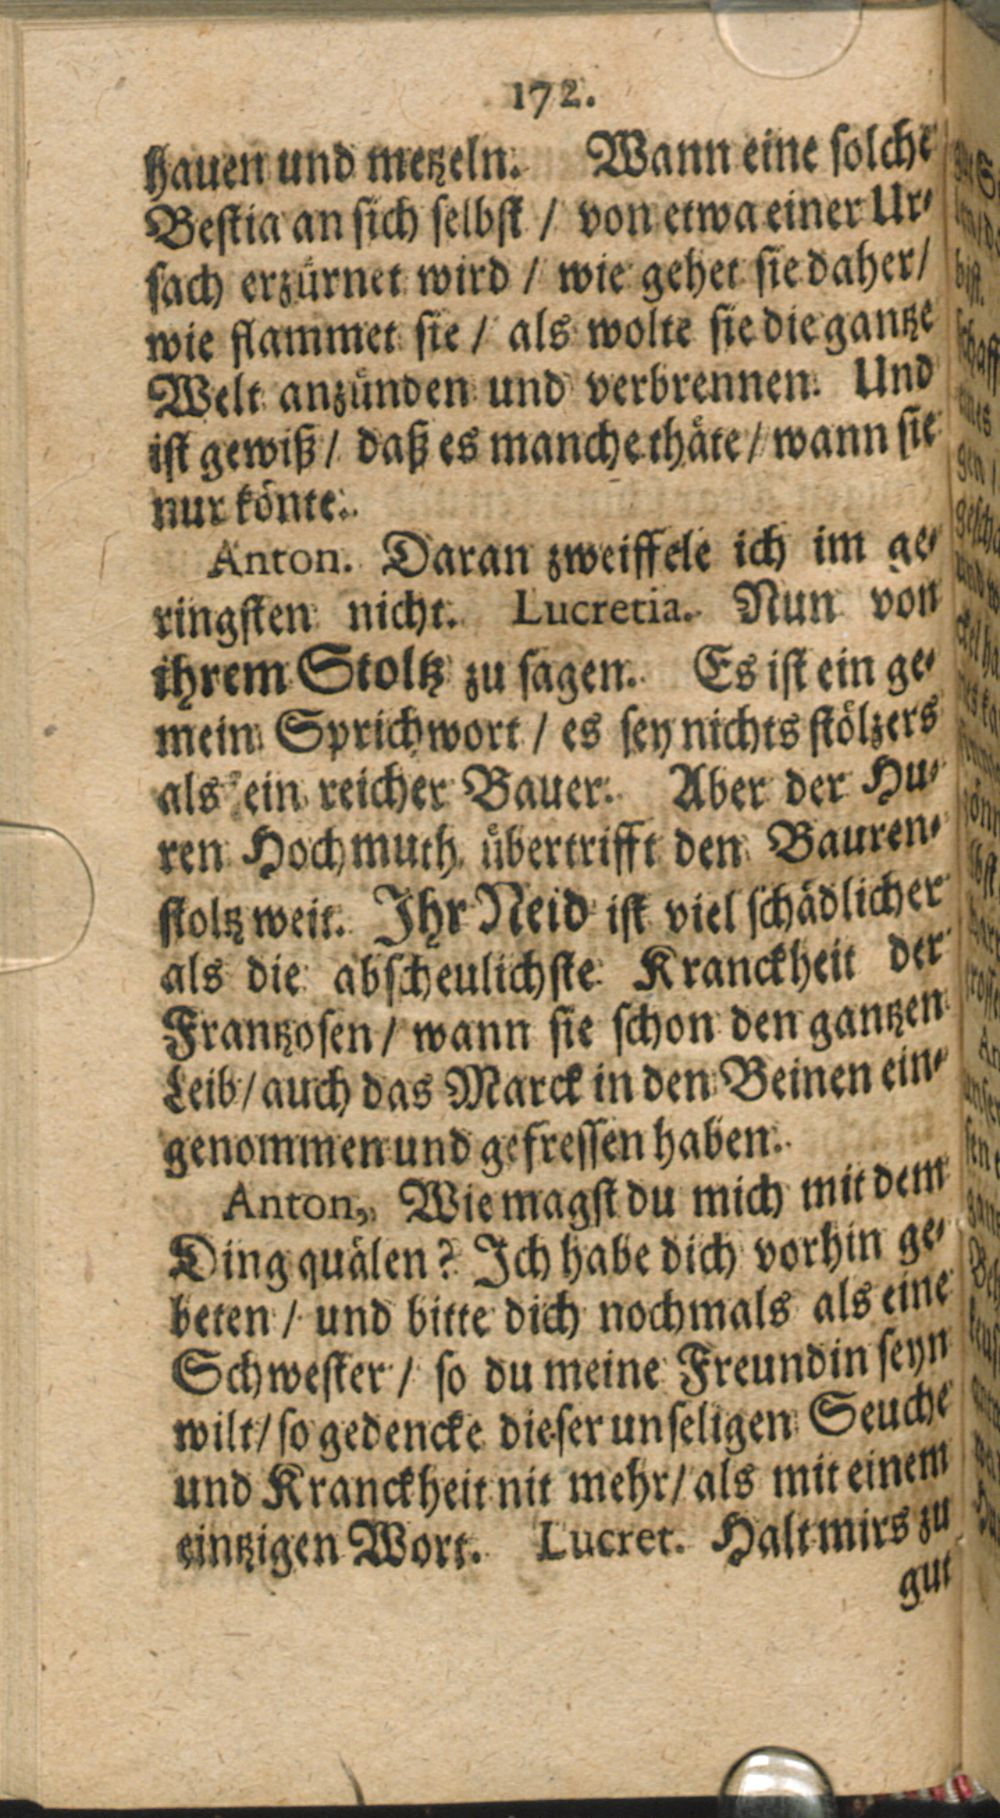 172.
hauen und metzeln. Wann eine solche
Bestia an sich selbst / von etwa einer Ur-
sach erzürnet wird / wie gehet sie daher /
wie flammet sie / als wolte sie die gantze
Welt anzünden und verbrennen. Und
ist gewiß / daß es manche thäte / wann sie
nur könte.
Anton. Daran zweiffele ich im ge-
ringsten nicht. Lucretia. Nun von
ihrem Stoltz zu sagen. Es ist ein ge-
mein Sprichwort / es sey nichts stöltzers
als ein reicher Bauer. Aber der Hu-
ren Hochmuth übertrifft den Bauren-
stoltz weit. Ihr Neid ist viel schädlicher
als die abscheulichste Kranckheit der
Frantzosen / wann sie schon den gantzen
Leib / auch das Marck in den Beinen ein-
genommen und gefressen haben.
Anton, Wie magst du mich mit dem
Ding quälen? Ich habe dich vorhin ge-
beten / und bitte dich nochmals als eine
Schwester / so du meine Freundin seyn
wilt / so gedencke dieser unseligen Seuche
und Kranckheit nit mehr / als mit einem
eintzigen Wort. Lucret. Halt mirs zu
gut